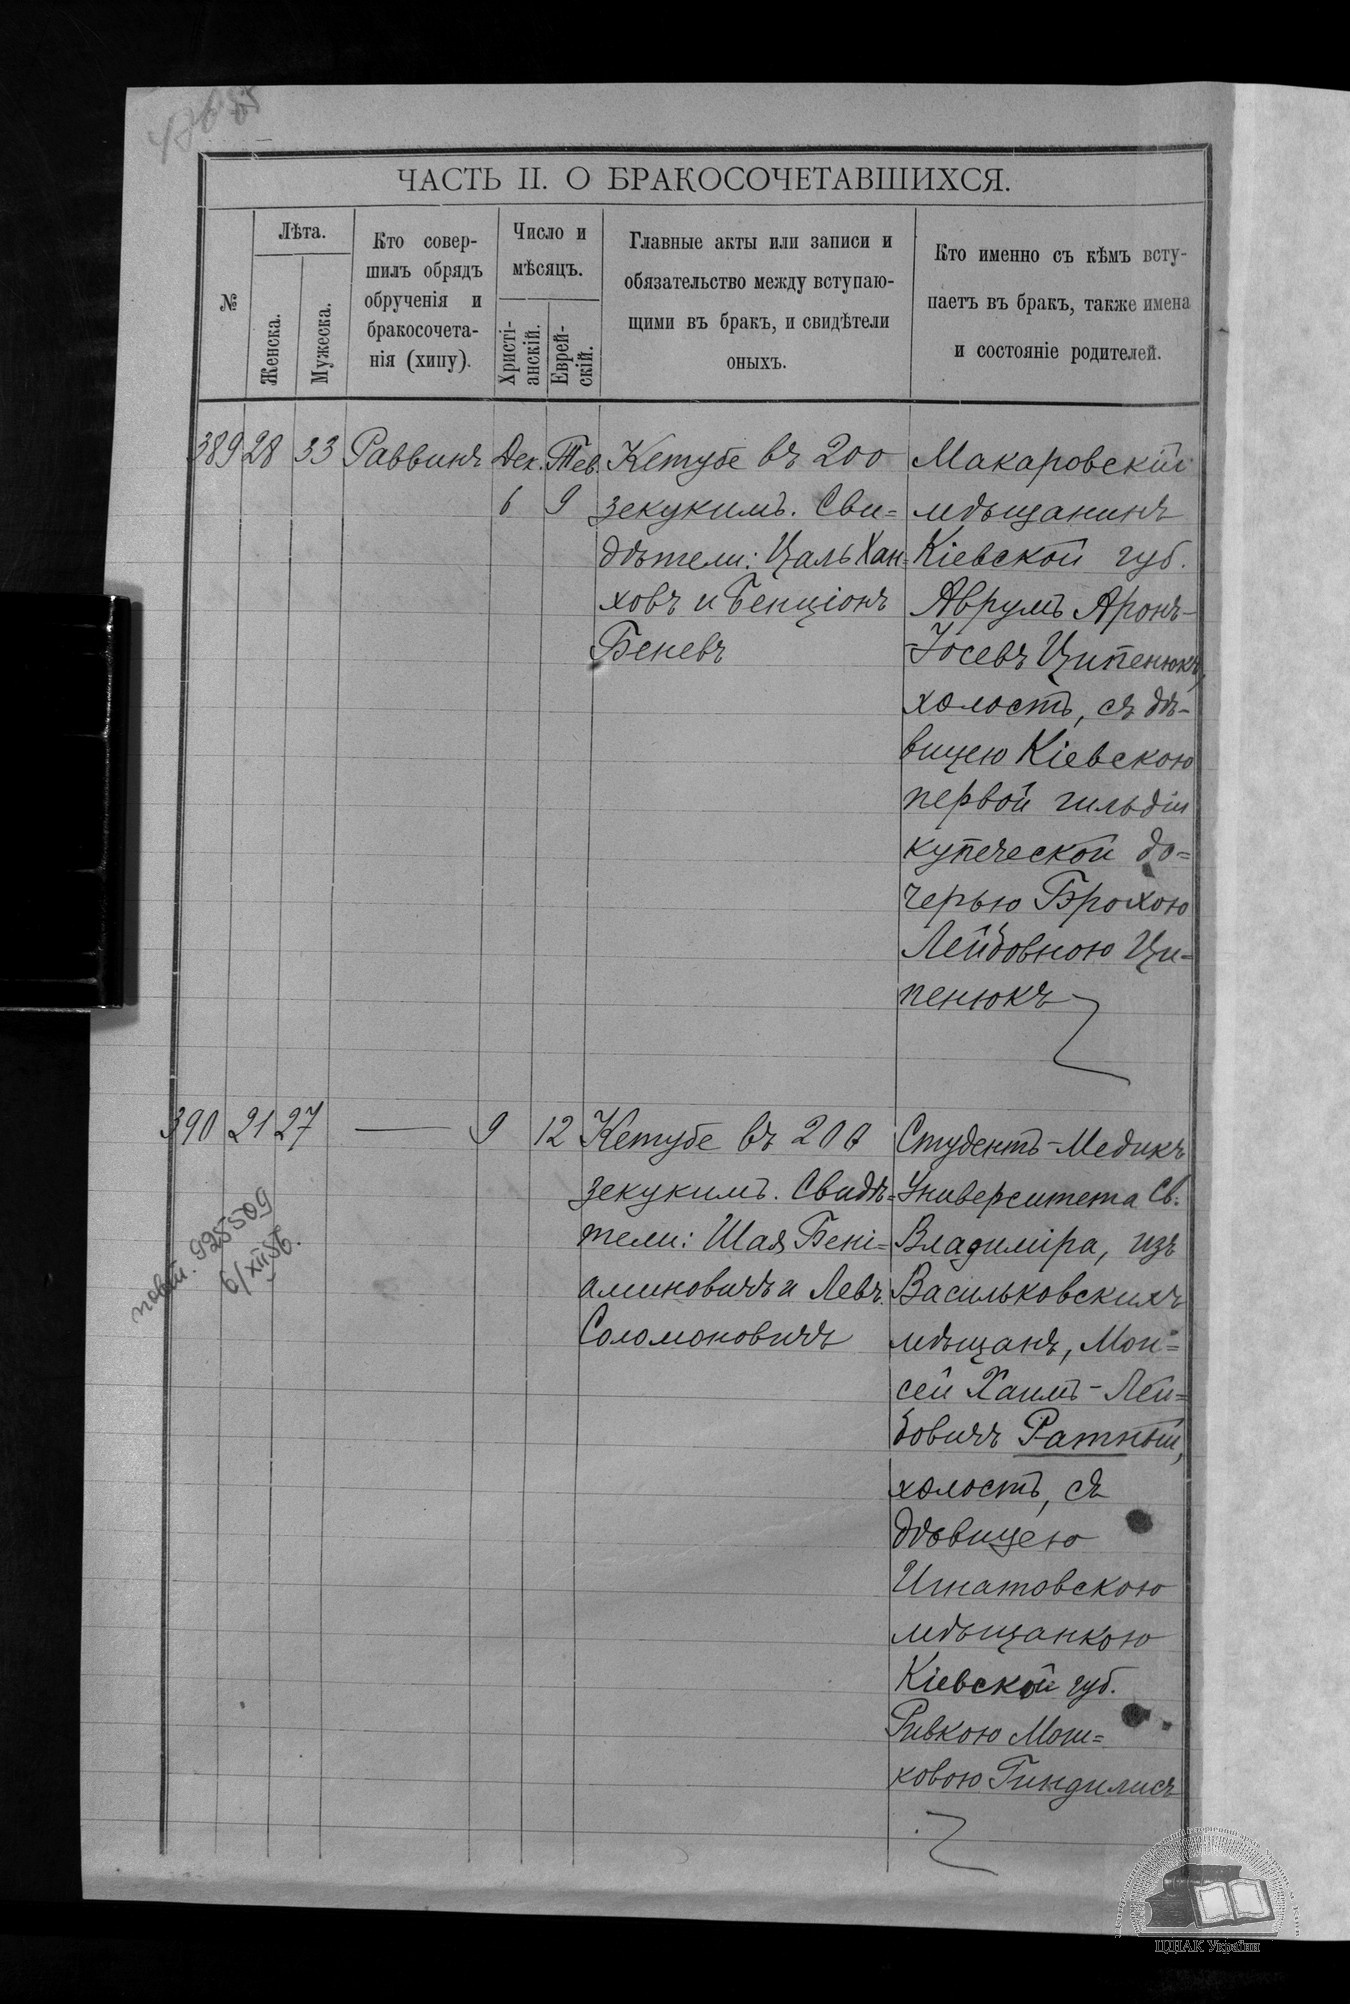 ЧАСТЬ II. О БРАКОСОЧЕТАВШИХСЯ.
№
Лѣта.
Женска.
Мужеска.
Кто совер-
шилъ обрядъ
обрученія и
бракосочета-
нія (хипу).
Число и
мѣсяцъ.
Христі-
анскій.
Еврей-
скій.
Главные акты или записи и
обязательство между вступаю-
щими въ бракъ, и свидѣтели
оныхъ.
Кто именно съ кѣмъ всту-
паетъ въ бракъ, также имена
и состояніе родителей.
389 28 33 Раввинъ Дек. Тев.
6 9
Кетубе въ 200
зекукимъ. Сви=
дѣтели: Цаль Хан=
ховъ и Бенціонъ
Беневъ
Макаровскій
мѣщанинъ
Кіевской губ.
Аврумъ Аронъ-
Іосевъ Ципенюкъ,
холостъ, съ дѣ-
вицею Кіевскою
первой гильдіи
купеческой до=
черью Брохою
Лейбовною Ци=
пенюкъ
390 21 27 — 9 12
Кетубе въ 200
зекукимъ. Свидѣ=
тели: Шая Бені=
аминовичъ и Левъ
Соломоновичъ
Студентъ-Медикъ
Университета Св.
Владиміра, изъ
Васильковскихъ
мѣщанъ, Мои=
сей Хаимъ-Лей=
бовичъ Ратный,
холостъ, съ
дѣвицею
Игнатовскою
мѣщанкою
Кіевской губ.
Ривкою Мош=
ковою Гиндилисъ
повт. 925509
6/XII 56.
ЦДІАК України